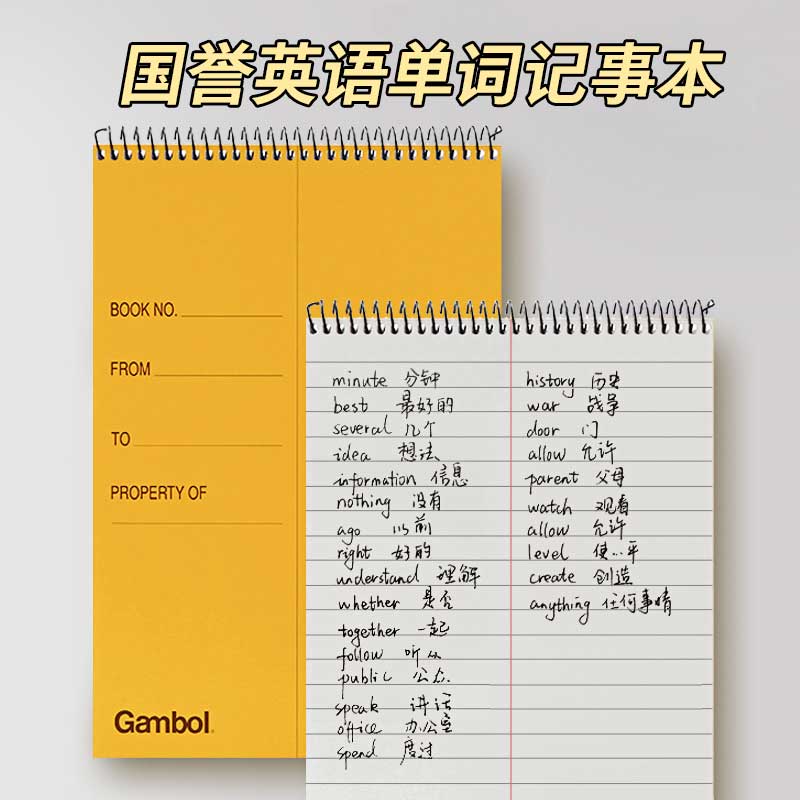 国誉英语单词记事本
BOOK NO.
FROM
TO
PROPERTY OF
Gambol
minute 分钟
best 最好的
several 几个
idea 想法
information 信息
nothing 没有
ago 以前
right 好的
understand 理解
whether 是否
together 一起
follow 听从
public 公众
speak 讲话
office 办公室
spend 度过
history 历史
war 战争
door 门
allow 允许
parent 父母
watch 观看
allow 允许
level 使…平
create 创造
anything 任何事情